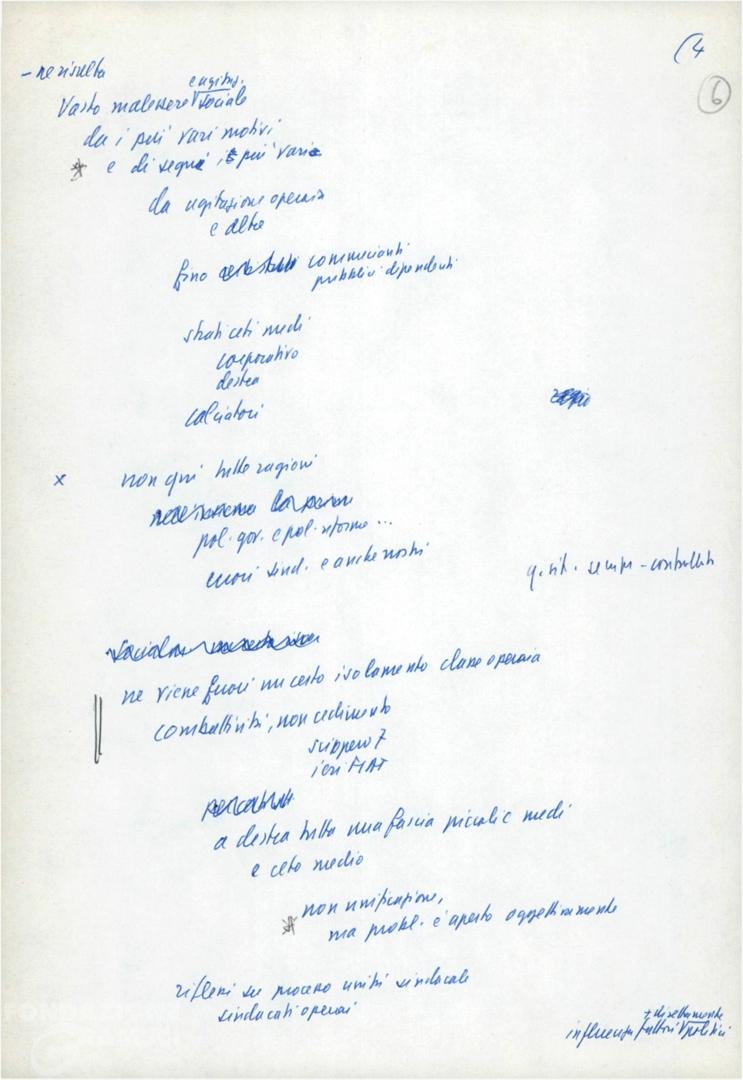 (4
6
- ne risulta
e agitaz.
Vasto malessere sociale
da i più vari motivi
* e di segni i più vari
da agitazione operaia
e altre
fino commercianti
pubblici dipendenti
strati ceti medi
corporativo
destra
calciatori
x non qui tutte ragioni
pol. gov. e pol. riforme ...
errori sind. e anche nostri
q. sit. sempre - controllati
ne viene fuori un certo isolamento classe operaia
combattività, non cedimento
sciopero 7
ieri FIAT
a destra tutta una fascia piccoli e medi
e ceto medio
non unificazione,
* ma probl. è aperto oggettivamente
riflessi su processo unità sindacale
sindacati operai
+ direttamente
influenza fattori politici